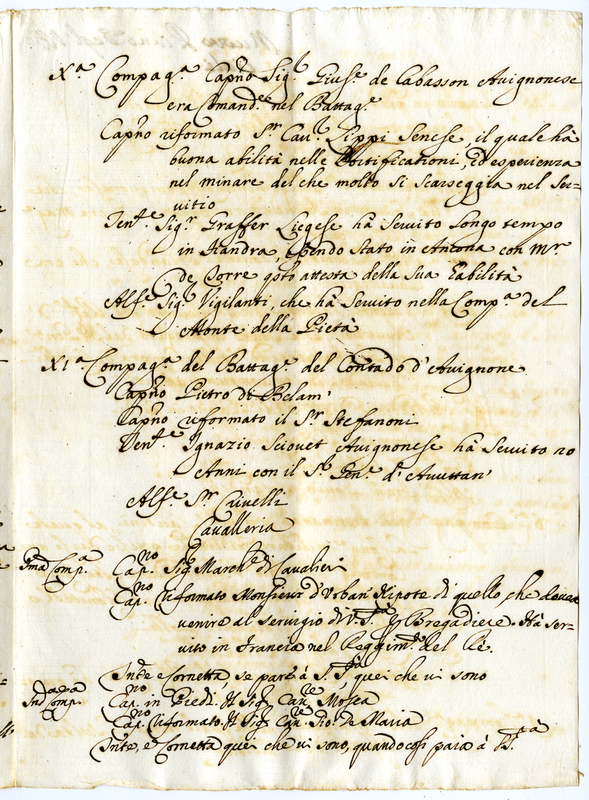 Xa Compaga Capno Sigr Giuse de Cabasson Avignonese
era Comande nel Battage
Capno riformato Sr Caur Lippi Senese, il quale hà
buona abilità nelle fortificationi, ed esperienza
nel minare del che molto si scarseggia nel ser=
vitio
Tente Sigr Graffer Liegese ha servito longo tempo
in Fiandra, essendo stato in Ancona con Mr
De Corre qsto attesta della sua habilità
Alfe Sigr Vigilanti, che hà servito nella Compa del
Monte della Pietà
XIa Compaga del Battage del Contado d'Avignone
Capno Pietro di Belam
Capno riformato il Sr Stefanoni
Tente Ignazio Sciouet Avignonese hà servito 20
Anni con il Sr Gene d'
Alfe Sr Crivelli
Cavalleria
Pma Compa Capno Sigr Marche di Cavalieri
Capno riformato Monsieur d'Urban Nipote di quello, che doveva
venire al servigio di V. Sta per Bregadiere. Hà ser-
vito in Francia nel Reggimto del Rè.
Tnte e Cornetta, se parrà à S. Stà quei che vi sono
Comp. Capno in Piedi Il Sigr Caure Mosca
Capno riformato Il Sigr Caure Gio: de Maria
Tnte, e Cornetta quei che vi sono, quando così paia à